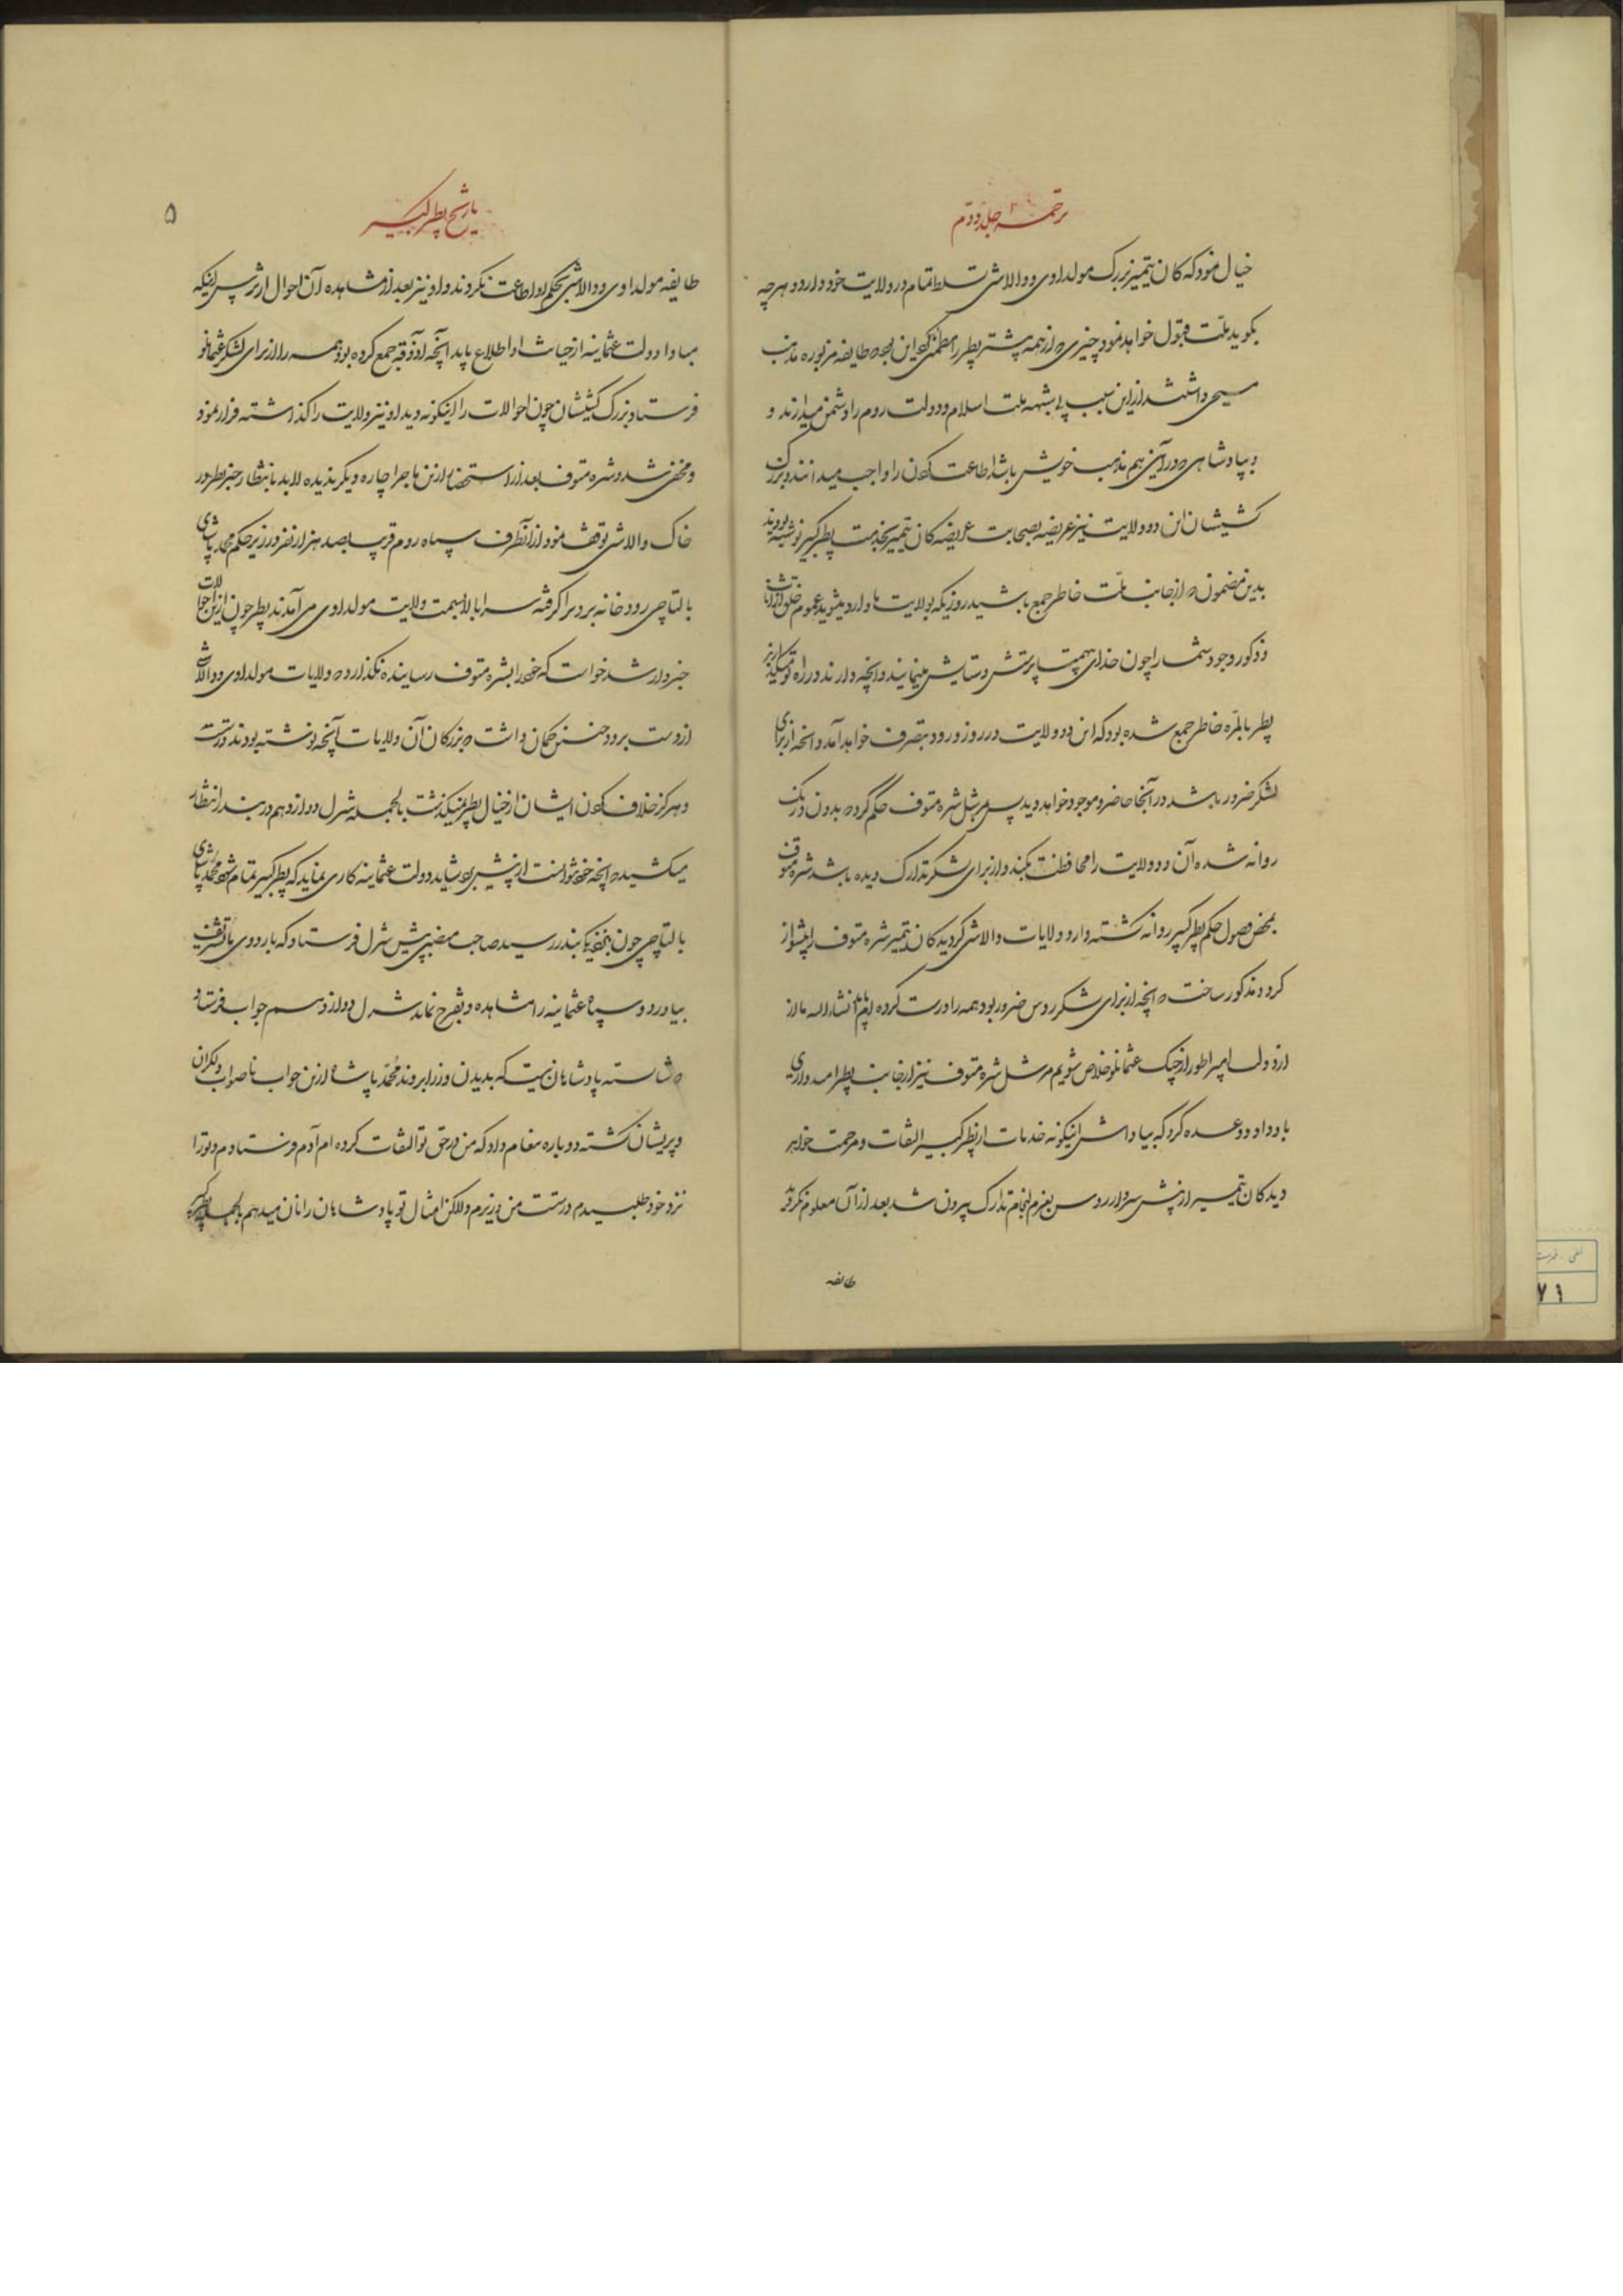 ترجمه جلد دوم
خیال نمود که کان تیمیر بزرک مولداوی و والاشی تسلط تمام در ولایت خود دارد و هرچه
بکوید ملت قبول خواهد نمود چیزی که از همه بیشتر پطر را مطمئن کرد این بود که طایفه مزبوره مذهب
مسیحی داشتند از این سبب بی شبهه ملت اسلام و دولت روم را دشمن میدارند و
پادشاهی که در آئین هم مذهب خویش باشد اطاعت کردن را واجب میدانند و بزرک
کشیشان این دو ولایت نیز عریضه بصحابت عریضه کان تیمیر بخدمت پطر کبیر نوشته بودند
بدین مضمون که از جانب ملت خاطر جمع باشید روزیکه بولایت ما وارد میشوید عموم خلق از اناث
و ذکور وجود شما را چون خدای پرستش و ستایش مینمایند و آنچه دارند در راه تو
پطر بالمره خاطر جمع شده بود که این دو ولایت در روز ورود بتصرف خواهد آمد و آنچه از برای
لشکر ضرور باشد در آنجا حاضر و موجود خواهد دید پس مرشل شره متوف حکم کرد که بدون درنک
روانه شده آن دو ولایت را محافظت بکند و از برای لشکر تدارک دیده باشد شره متوف
بمحض وصول حکم پطر کبیر روانه کشته وارد ولایات والاشی کردید کان تیمیر شره متوف را پیشواز
کرد و مذکور ساخت که آنچه از برای لشکر روس ضرور بود همه را درست کرده ایم انشاء الله ما از
از دولت امپراطور از چنک عثمانلو خلاص شویم مرشل شره متوف نیز از جانب پطر امیدواری
باو داد و وعده کرد که بپاداش اینکونه خدمات از پطر کبیر التفات و مرحمت خواهد
دید کان تیمیر از پیش سردار روس بعزم انجام تدارک بیرون شد بعد از آن معلوم کرد که
طایفه
تاریخ پطر کبیر
۵
طایفه مولداوی و والاشی بحکم او اطاعت نکردند و او نیز بعد از مشاهده آن احوال از ترس اینکه
مبادا دولت عثمانیه از خیانت او اطلاع یابد آنچه آذوقه جمع کرده بود همه را از برای لشکر عثمانلو
فرستاد بزرک کشیشان چون احوالات را اینکونه دید او نیز ولایت را کذاشته فرار نمود
و مخفی شد و شره متوف بعد از استحضار از این ماجرا چاره دیکر ندیده لابد بانتظار خبر پطر در
خاک والاشی توقف نمود از آنطرف سپاه روم قریب بصد هزار نفر در زیر حکم محمد پاشای
بالتاچی رودخانه را کرفته سرابالا بسمت ولایت مولداوی می آمدند پطر چون از این احوالات
خبردار شد خواست که خود را بشره متوف رسانیده نکذارد که ولایات مولداوی و والاشی
از دست برود چنین کمان داشت که بزرکان آن ولایات آنچه نوشته بودند درست
و هرکز خلاف کردن ایشان از خیال پطر نمیکذشت بالجمله شرل دوازدهم در بندر انتظار
میکشید که آنچه خود نتوانست از پیش برد شاید دولت عثمانیه کاری نماید که پطر کبیر تمام شود محمد پاشای
بالتاچی چون بنزدیک بندر رسید صاحب منصبی پیش شرل فرستاد که باردوی ما تشریف
بیاورد و سپاه عثمانیه را مشاهده و تفرج نماید شرل دوازدهم جواب فرستاد
که شایسته پادشاهان نیست که بدیدن وزرا بروند محمد پاشا از این جواب ناصواب دلکران
و پریشان کشته دوباره پیغام داد که من در حق تو التفات کرده ام آدم فرستادم و تو را
نزد خود طلبیدم درست من وزیرم ولاکن امثال تو پادشاهان را نان میدهم بالجمله پطر کبیر